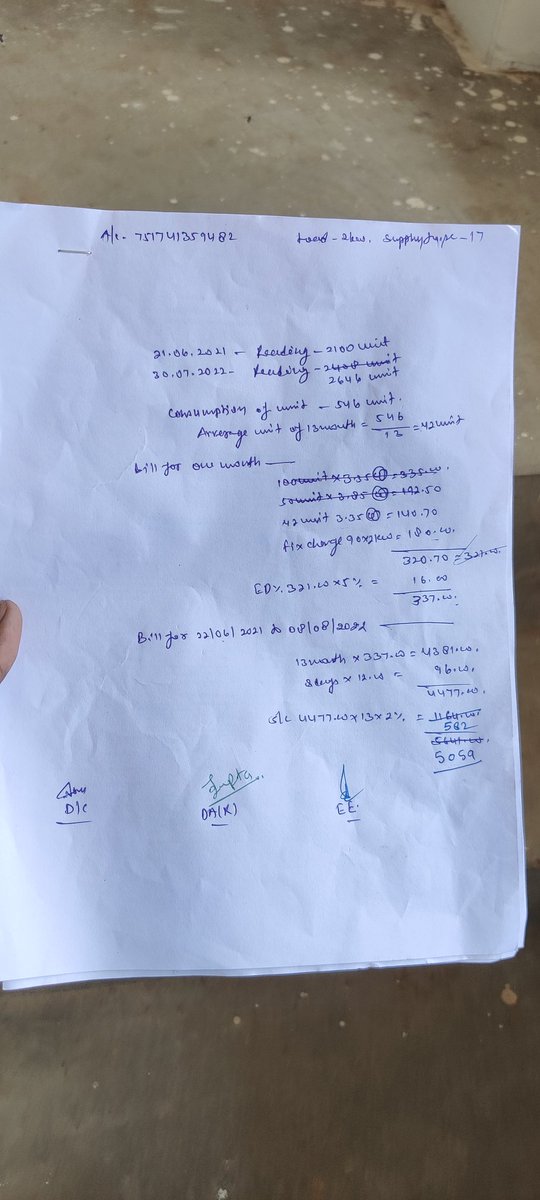 A/c. 751741359482 Load - 2kw. Supply type - 17
21.06.2021 - Reading - 2100 unit
30.07.2022 - Reading - 2408 unit
2646 unit
Consumption of unit - 546 unit.
Average unit of 13 month = 546/13 = 42 unit
Bill for one month —
100 unit x 3.35 @ = 335.00.
50 unit x 3.85 @ = 192.50
42 unit 3.35 @ = 140.70
fix charge 90x2kw = 180.00.
320.70 = 321.00.
ED% 321.00 x 5% = 16.00
337.00.
Bill for 22/06/2021 to 08/08/2022 —
13 month x 337.00 = 4381.00.
8 days x 12.00 = 96.00.
4477.00.
S/C 4477.00 x 13 x 2% = 1164.00.
582
5641.00.
5059
Gupta
D/C DA(K) EE.